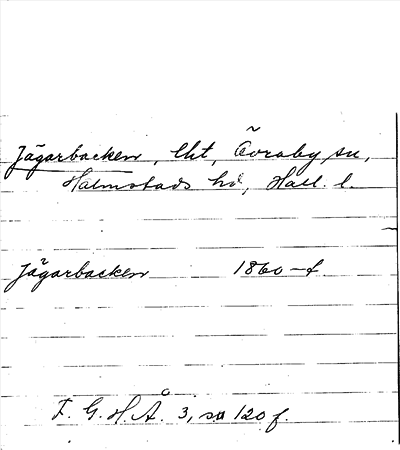 Jägarbacken, lht, Övraby sn,
Halmstads hd, Hall. l.
Jägarbacken 1860-t.
F. G. H Å. 3, sn 120 f.